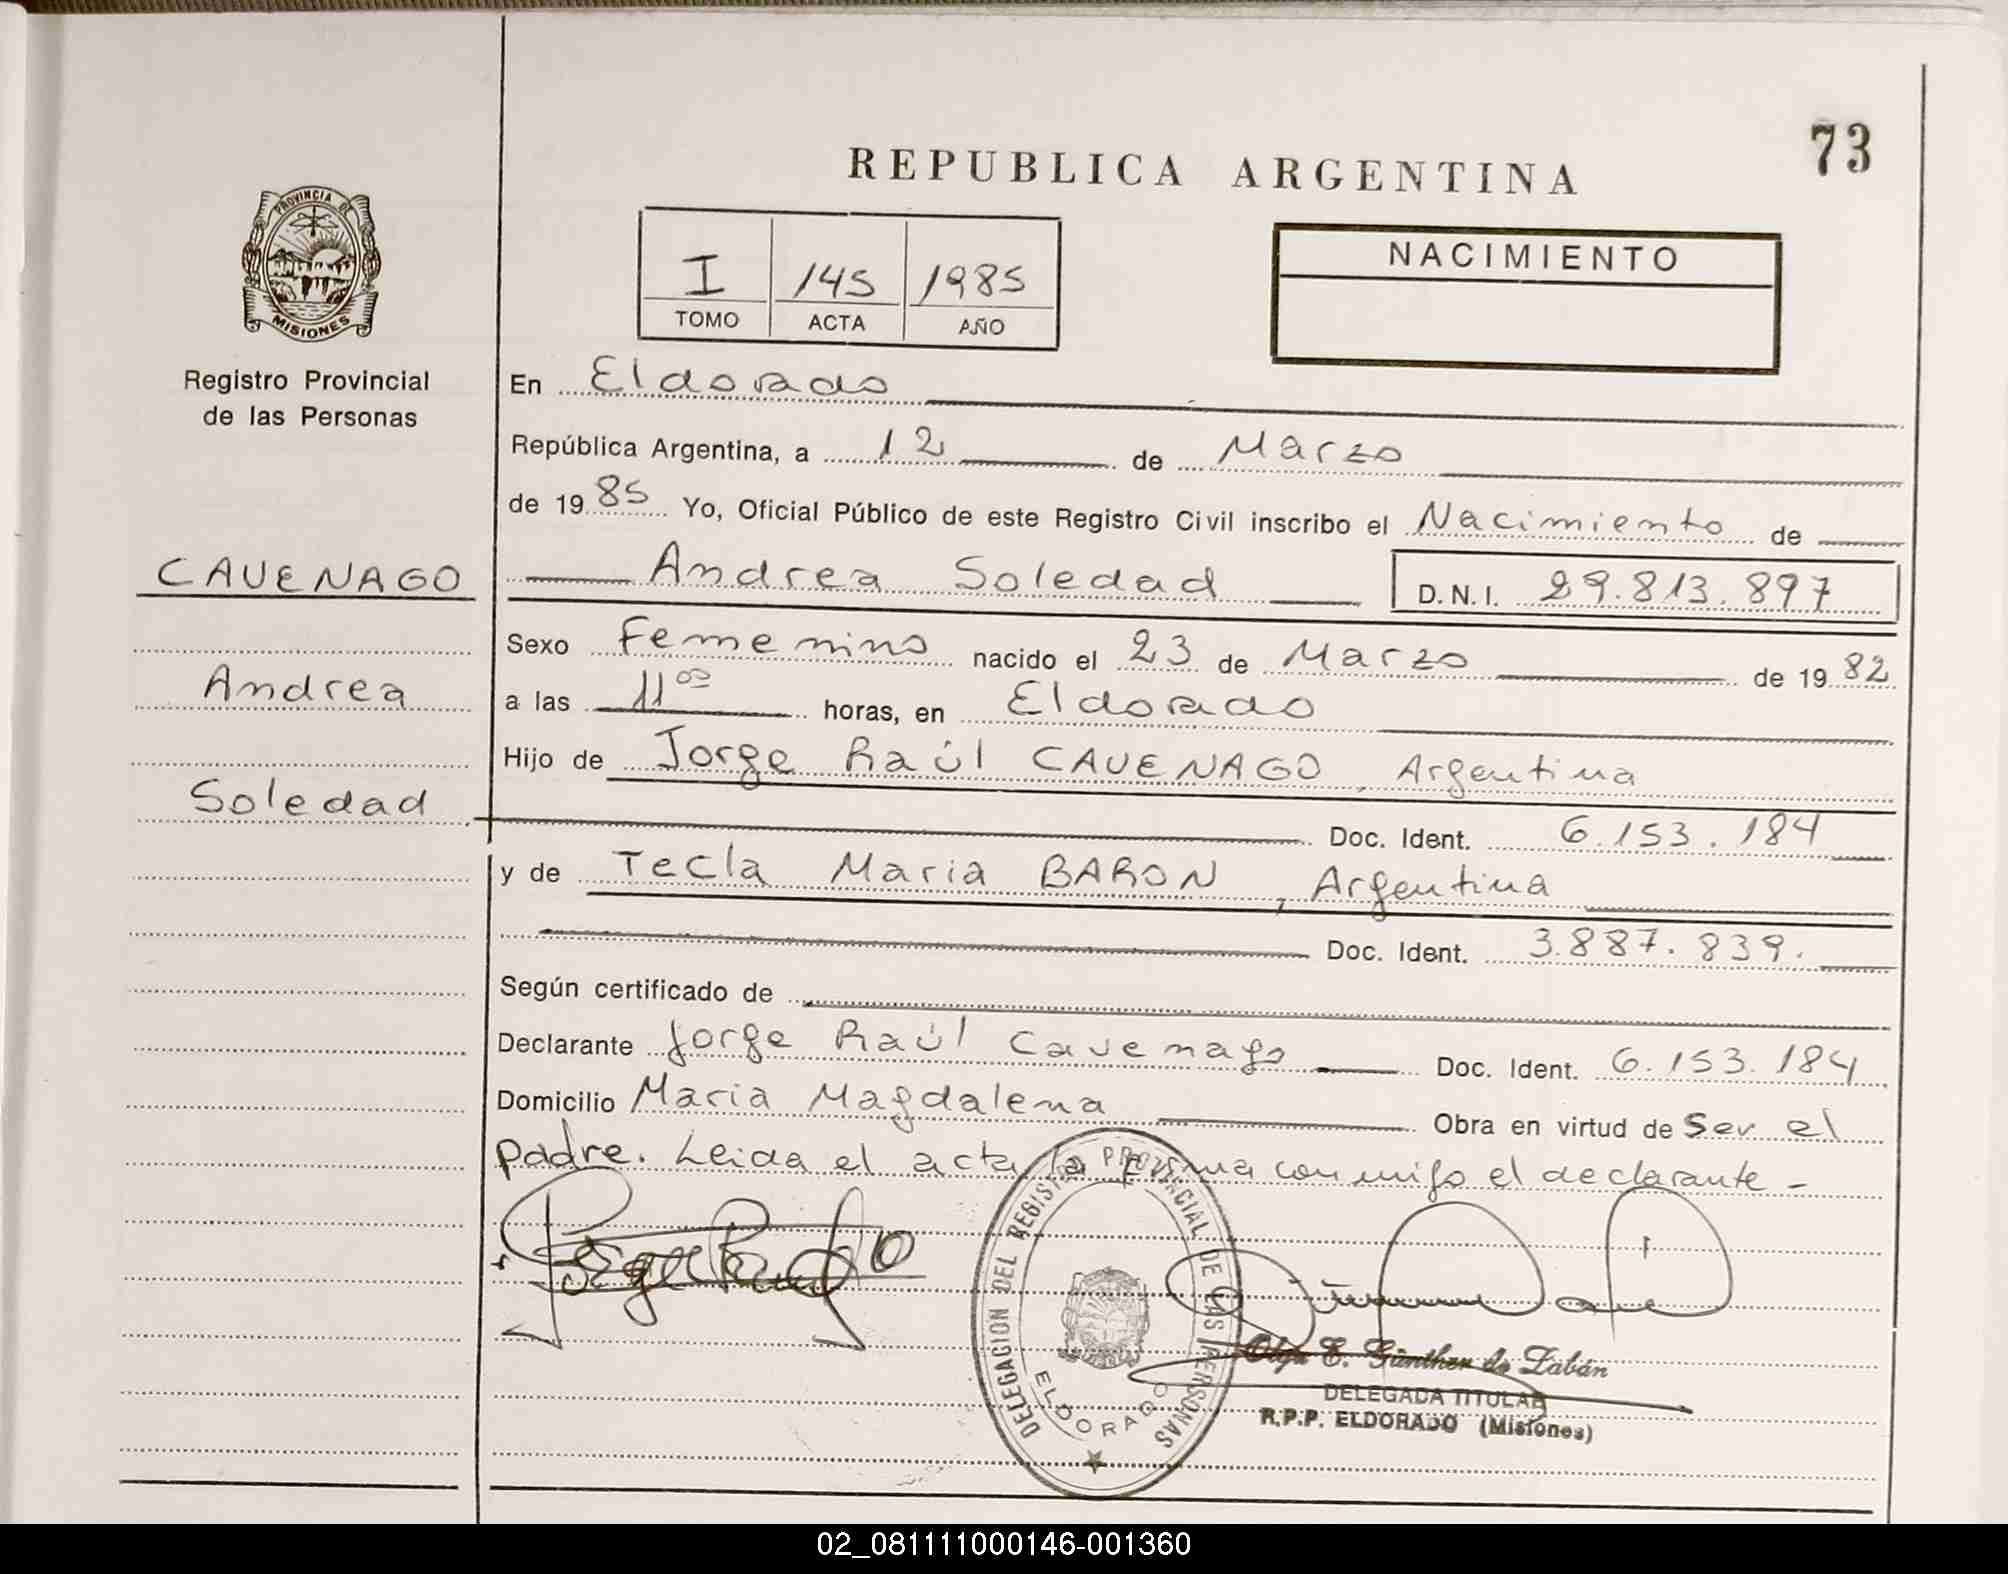 73
REPUBLICA ARGENTINA
PROVINCIA DE
MISIONES
Registro Provincial
de las Personas
I 145 1985
TOMO ACTA AÑO
NACIMIENTO
En Eldorado
República Argentina, a 12 de Marzo
de 1985 Yo, Oficial Público de este Registro Civil inscribo el Nacimiento de
CAVENAGO
Andrea Soledad D.N.I. 29.813.897
Sexo Femenino nacido el 23 de Marzo de 1982
Andrea
a las 11 00 horas, en Eldorado
Hijo de Jorge Raúl CAVENAGO, Argentina
Soledad
Doc. Ident. 6.153.184
y de Tecla Maria BARON, Argentina
Doc. Ident. 3.887.839.
Según certificado de
Declarante Jorge Raúl Cavenago Doc. Ident. 6.153.184
Domicilio Maria Magdalena Obra en virtud de Ser el
padre. Leida el acta la Firma conmigo el declarante -
DELEGACION DEL REGISTRO PROVINCIAL DE LAS PERSONAS
ELDORADO
Olga E. Günther de Zabán
DELEGADA TITULAR
R.P.P. ELDORADO (Misiones)
02_081111000146-001360